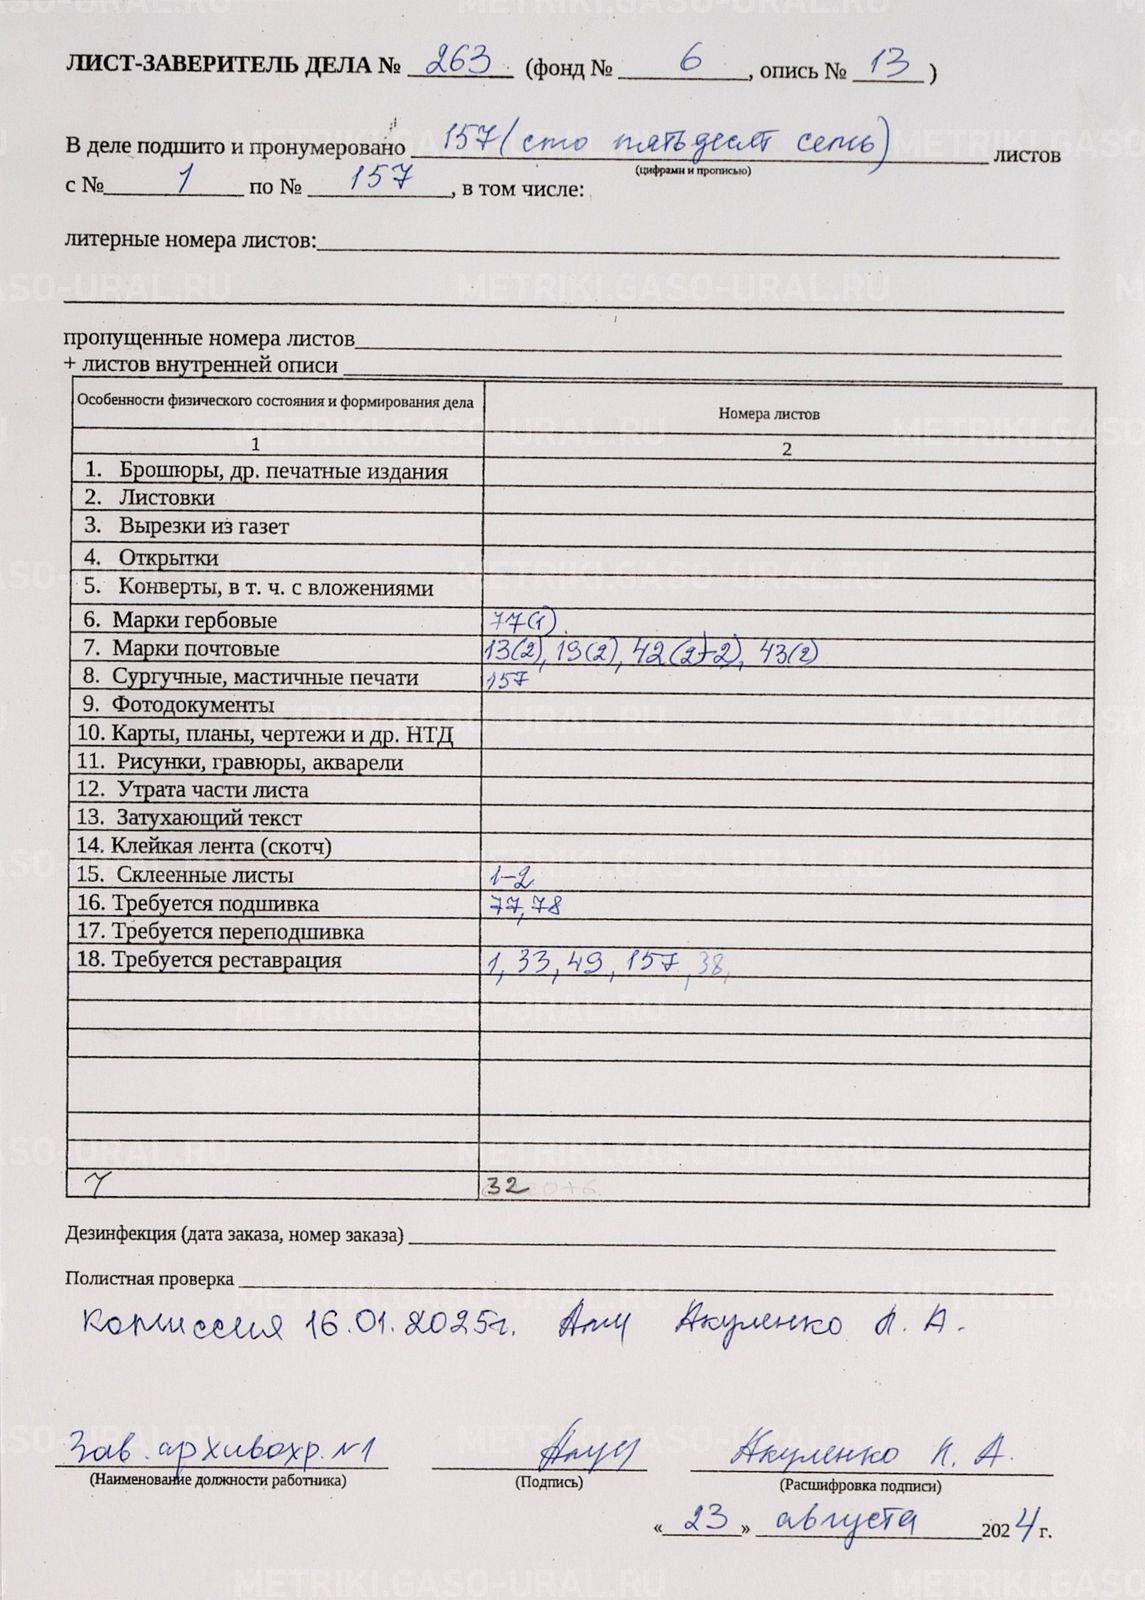 ЛИСТ-ЗАВЕРИТЕЛЬ ДЕЛА № 263 (фонд № 6, опись № 13)
В деле подшито и пронумеровано 157 (сто пятьдесят семь) листов
(цифрами и прописью)
с № 1 по № 157, в том числе:
литерные номера листов:
пропущенные номера листов
+ листов внутренней описи
Особенности физического состояния и формирования дела Номера листов
1 2
1. Брошюры, др. печатные издания
2. Листовки
3. Вырезки из газет
4. Открытки
5. Конверты, в т. ч. с вложениями
6. Марки гербовые 77(1)
7. Марки почтовые 13(2), 19(2), 42(2+2), 43(2)
8. Сургучные, мастичные печати 157
9. Фотодокументы
10. Карты, планы, чертежи и др. НТД
11. Рисунки, гравюры, акварели
12. Утрата части листа
13. Затухающий текст
14. Клейкая лента (скотч)
15. Склеенные листы 1-2
16. Требуется подшивка 77, 78
17. Требуется переподшивка
18. Требуется реставрация 1, 33, 49, 157, 38,
7 32
Дезинфекция (дата заказа, номер заказа)
Полистная проверка
Комиссия 16.01.2025г. Акуленко Л. А.
Зав. архивохр. №1 Акуленко Л. А.
(Наименование должности работника) (Подпись) (Расшифровка подписи)
«23» августа 2024 г.
METRIKI.GASO-URAL.RU